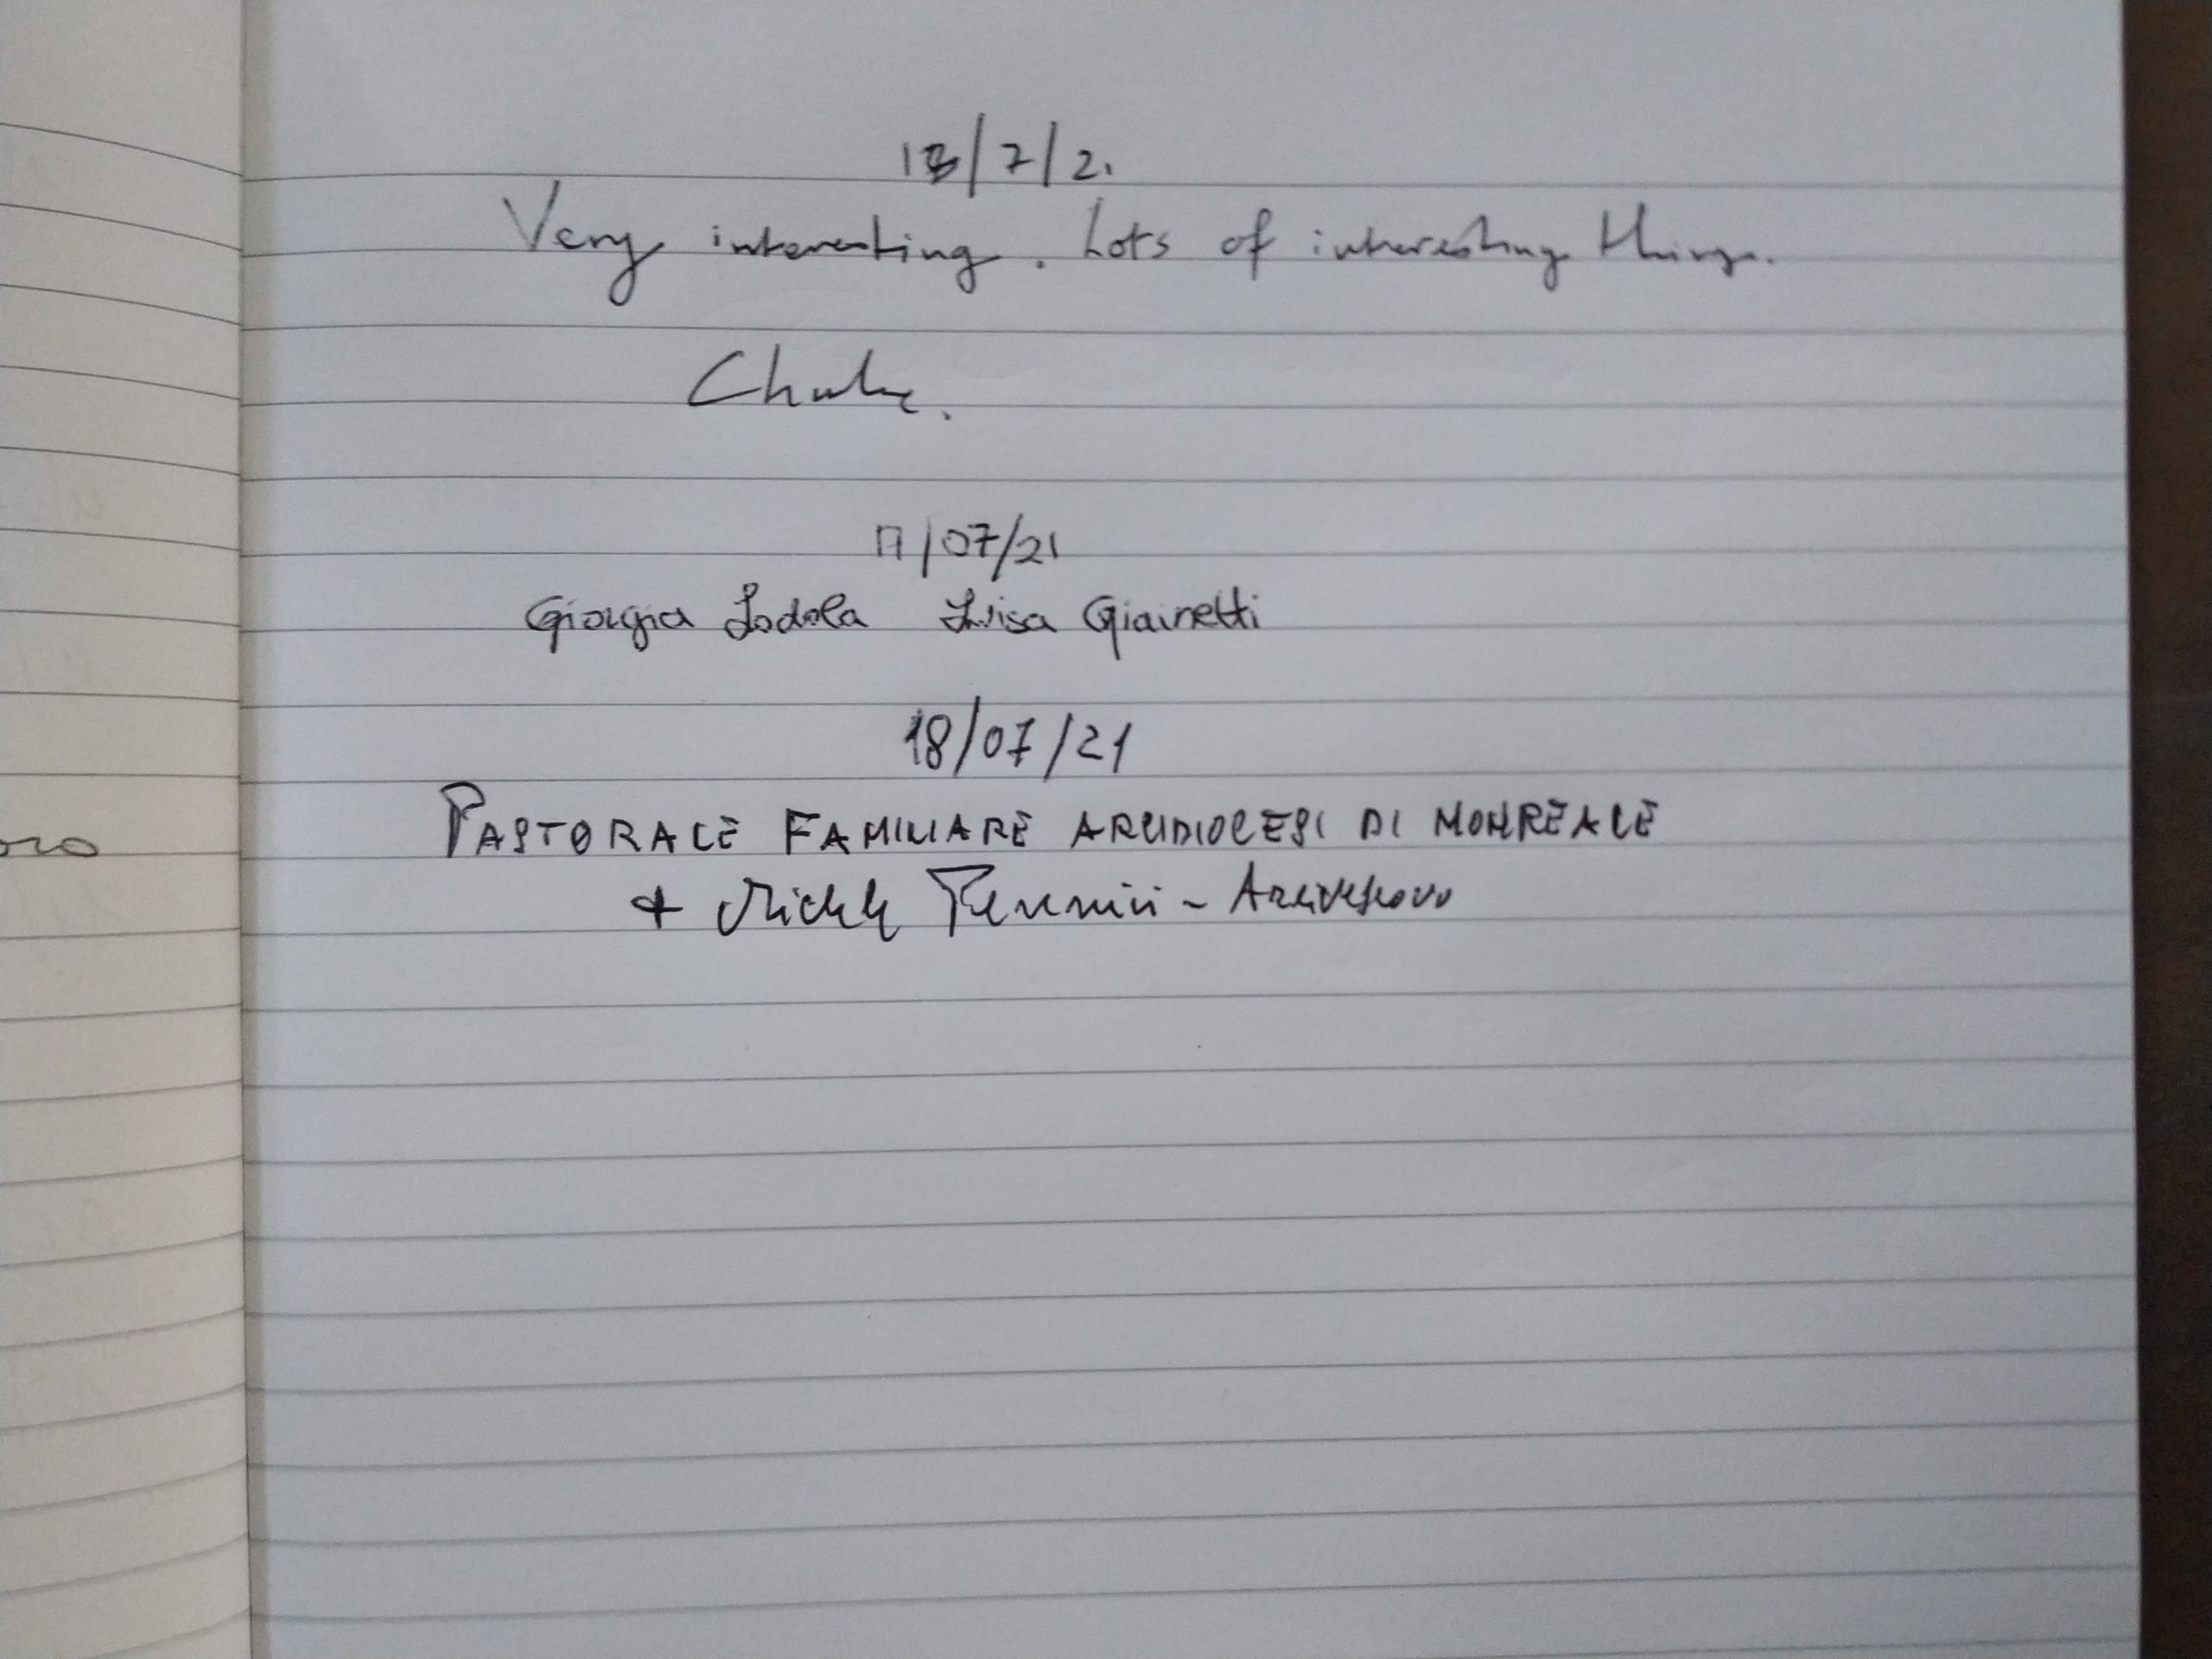 13/7/21
Very interesting. Lots of interesting things.
17/07/21
Giorgia Lodola Luisa Giairetti
18/07/21
PASTORALE FAMILIARE ARCIDIOCESI DI MONREALE
+ Michele Pennisi - Arcivescovo